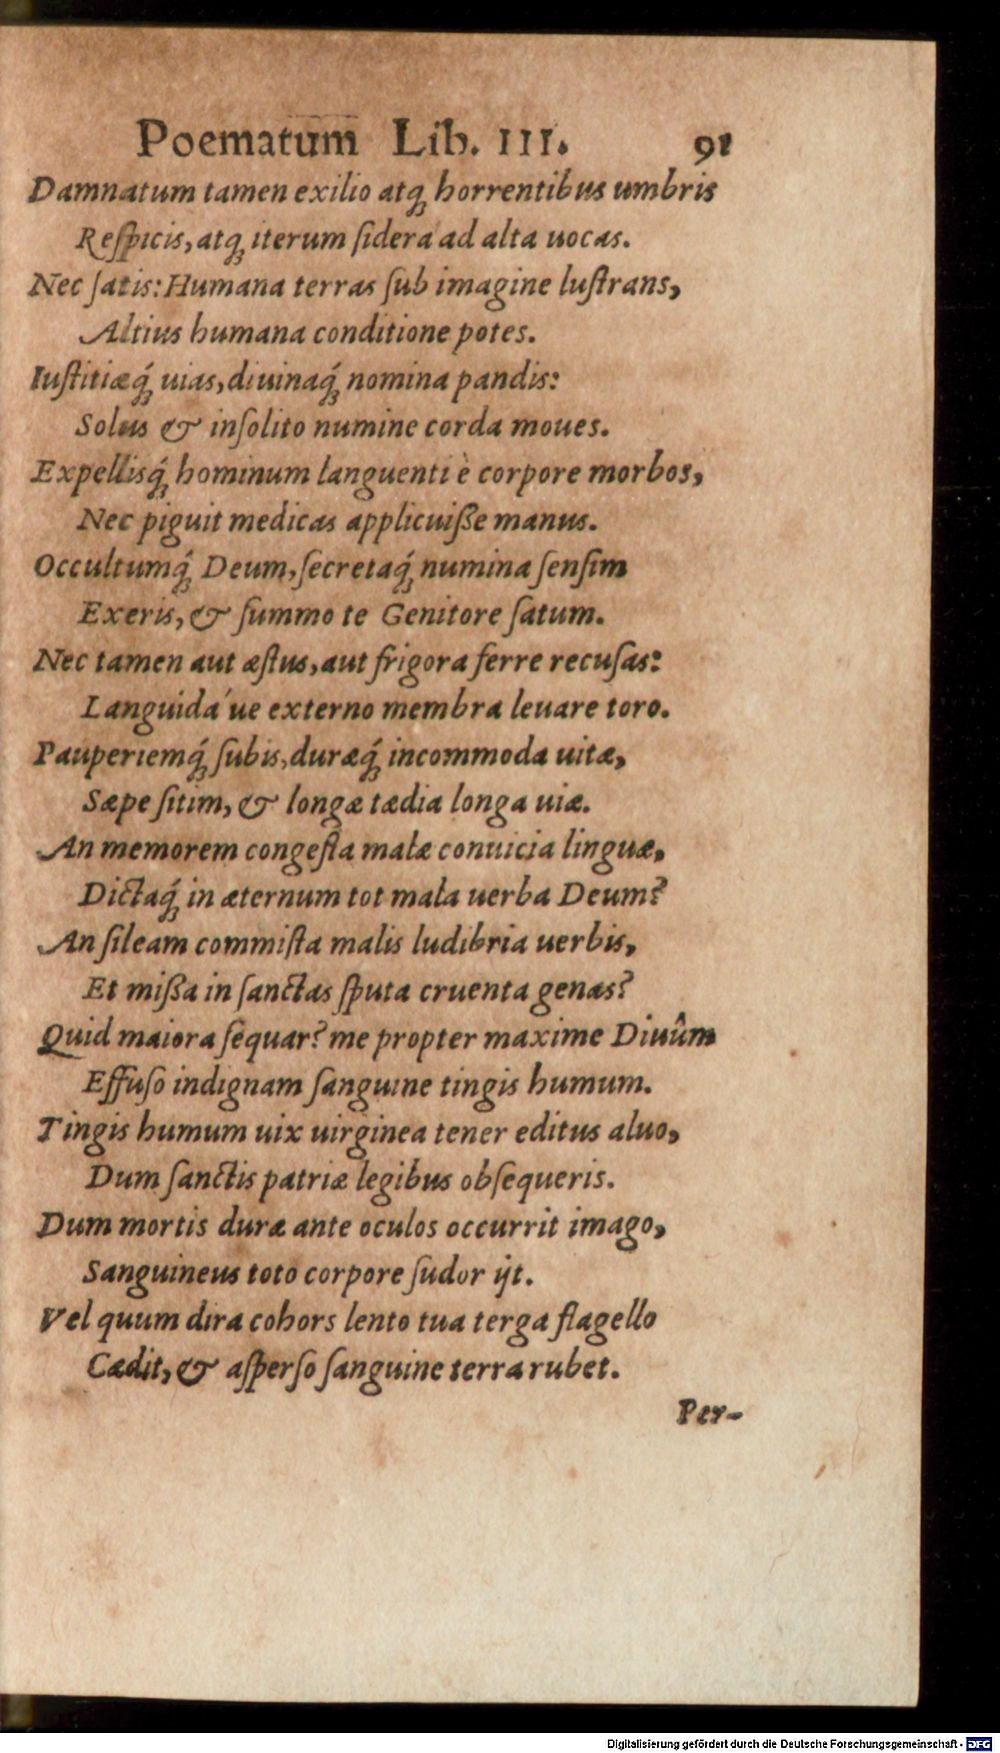 Poematum Lib. III. 91
Damnatum tamen exilio atq; horrentibus umbris
Respicis, atq; iterum sidera ad alta uocas.
Nec satis: Humana terras sub imagine lustrans,
Altius humana conditione potes.
Iustitiæq́; uias, diuinaq́; nomina pandis:
Solus & insolito numine corda moues.
Expellisq́; hominum languenti è corpore morbos,
Nec piguit medicas applicuiße manus.
Occultumq́; Deum, secretaq́; numina sensim
Exeris, & summo te Genitore satum.
Nec tamen aut æstus, aut frigora ferre recusas:
Languidá ue externo membra leuare toro.
Pauperiemq́; subis, duræq́; incommoda uitæ,
Sæpe sitim, & longæ tædia longa uiæ.
An memorem congesta malæ conuicia linguæ,
Dictaq́; in æternum tot mala uerba Deum?
An sileam commista malis ludibria uerbis,
Et mißa in sanctas sputa cruenta genas?
Quid maiora sequar? me propter maxime Diuûm
Effuso indignam sanguine tingis humum.
Tingis humum uix uirginea tener editus aluo,
Dum sanctis patriæ legibus obsequeris.
Dum mortis duræ ante oculos occurrit imago,
Sanguineus toto corpore sudor ijt.
Vel quum dira cohors lento tua terga flagello
Cædit, & asperso sanguine terra rubet.
Per-
Digitalisierung gefördert durch die Deutsche Forschungsgemeinschaft - DFG